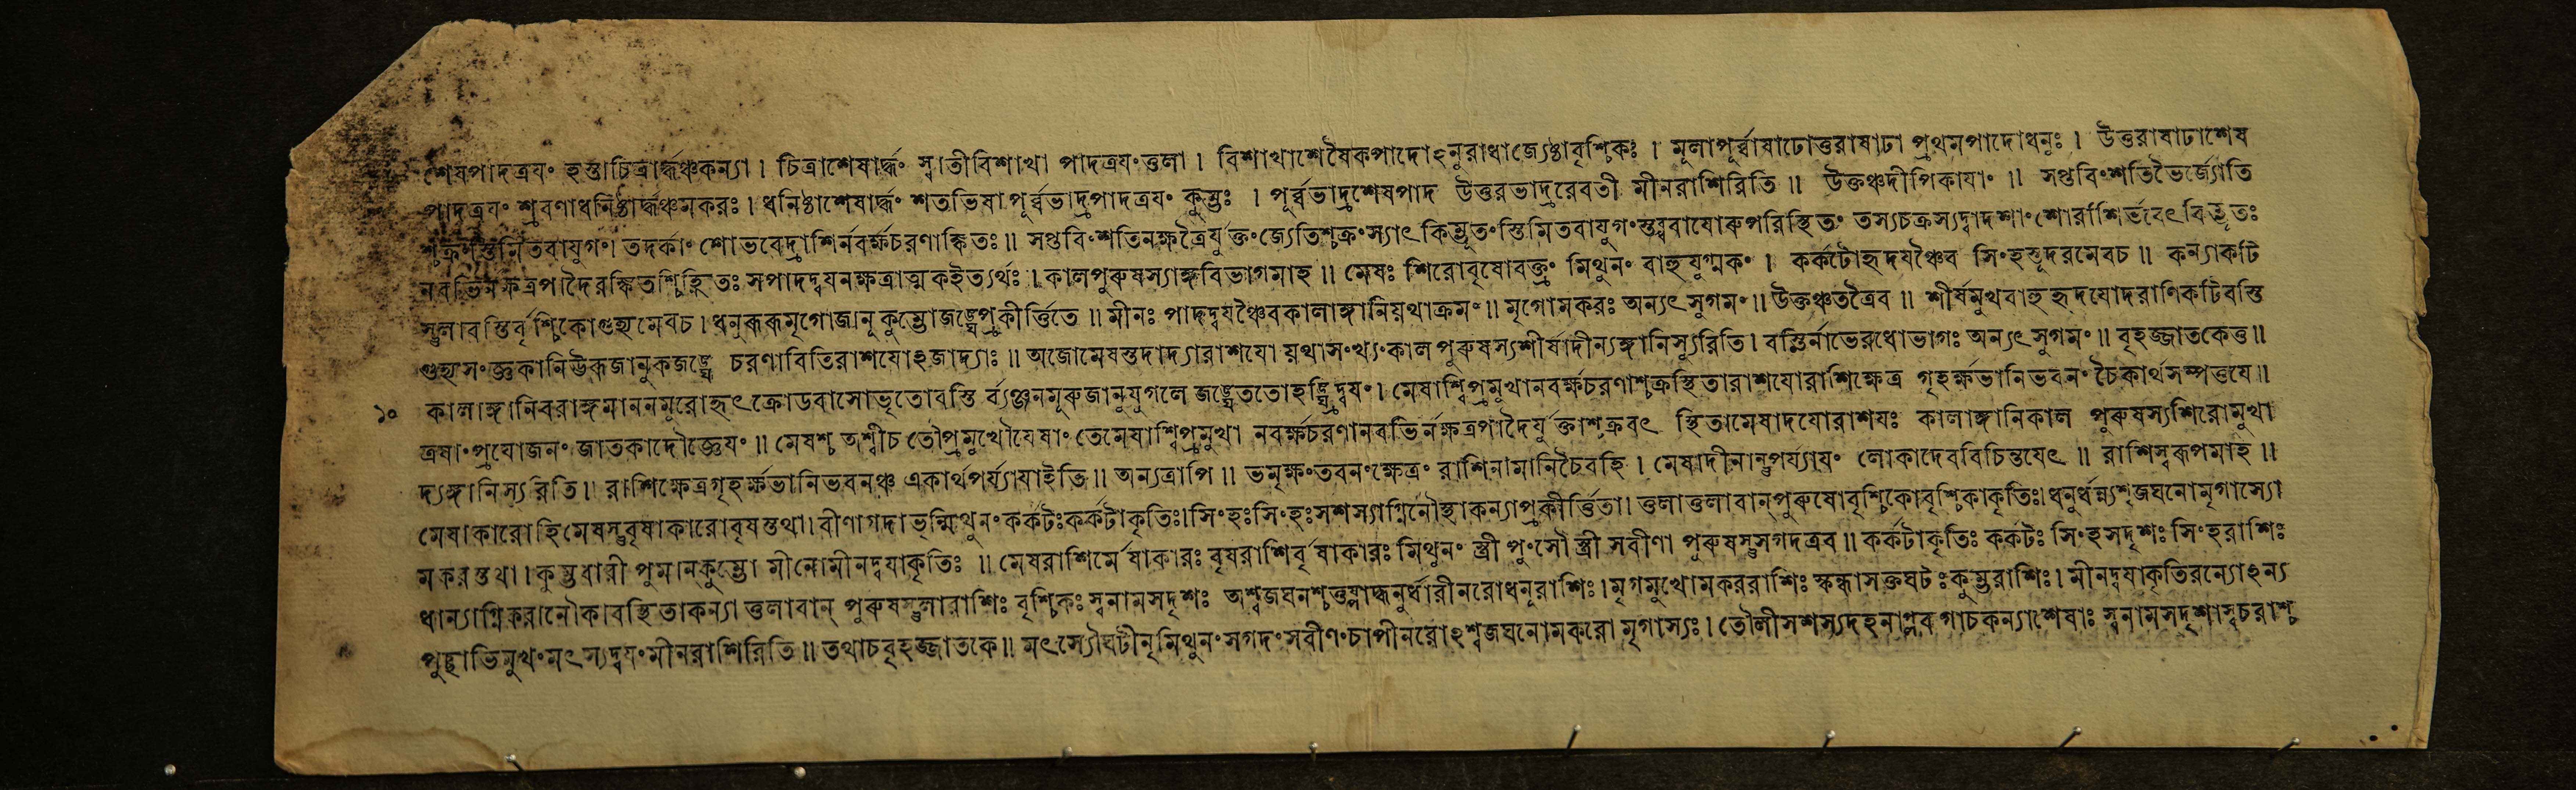 শেষপাদত্রয়ং হস্তাচিত্রার্দ্ধঞ্চকন্যা। চিত্রাশেষার্দ্ধং স্বাতীবিশাখা পাদত্রয়ংত্তুলা। বিশাখাশেষৈকপাদোঽনুরাধাজ্যেষ্ঠাবৃশ্চিকঃ। মূলাপূর্ব্বাষাঢোত্তরাষাঢা প্রথমপাদোধনুঃ। উত্তরাষাঢাশেষ
পাদত্রয়ং শ্রবণাধনিষ্ঠার্দ্ধঞ্চমকরঃ। ধনিষ্ঠাশেষার্দ্ধং শতভিষাপূর্ব্বভাদ্রপাদত্রয়ং কুম্ভঃ। পূর্ব্বভাদ্রশেষপাদ উত্তরভাদ্ররেবতী মীনরাশিরিতি॥ উক্তঞ্চদীপিকায়াং॥ সপ্তবিংশতিভৈর্জ্যোতি
শ্চক্রংস্তিমিতবায়ুগং। তদর্কাংশোভবেদ্রাশির্নবর্ক্ষচরণাঙ্কিতঃ॥ সপ্তবিংশতিনক্ষত্রৈর্যুক্তংজ্যেতিশ্চক্রংস্যাৎকিম্ভূতংস্তিমিতবায়ুগংস্তব্ধবায়োরুপরিস্থিতং তস্যচক্রস্যদ্বাদশাংশোরাশির্ভবেৎকিম্ভূতঃ
নবভির্নক্ষত্রপাদৈরঙ্কিতশ্চিহ্নিতঃ সপাদদ্বয়নক্ষত্রাত্মকইত্যর্থঃ। কালপুরুষস্যাঙ্গবিভাগমাহ॥ মেষঃ শিরোবৃষোবক্ত্রং মিথুনং বাহুযুগ্মকং। কর্কটোহৃদয়ঞ্চৈব সিংহস্তূদরমেবচ॥ কন্যাকটি
স্তুলাবস্তির্বৃশ্চিকোগুহ্যমেবচ। ধনুরূরূমৃগোজানুকুম্ভোজঙ্ঘেপ্রকীর্ত্তিতে॥ মীনঃ পাদদ্বয়ঞ্চৈবকালাঙ্গানিয়থাক্রমং॥ মৃগোমকরঃ অন্যৎসুগমং॥ উক্তঞ্চতত্রৈব॥ শীর্ষমুখবাহুহৃদয়োদরাণিকটিবস্তি
গুহ্যসংজ্ঞকানিঊরূজানুকজঙ্ঘে চরণাবিতিরাশয়োঽজাদ্যাঃ॥ অজোমেষস্তদাদ্যারাশয়ো য়থাসংখ্যংকালপুরুষস্যশীর্ষাদীন্যঙ্গানিস্যুরিতি। বস্তির্নাভেরধোভাগঃ অন্যৎসুগমং॥ বৃহজ্জাতকেত্তু॥
১০ কালাঙ্গানিবরাঙ্গমাননমুরোহৃৎক্রোডবাসোভৃতোবস্তি র্ব্যঞ্জনমুরুজানুযুগলে জঙ্ঘেততোহঙ্ঘ্রিদ্বয়ং। মেষাশ্বিপ্রমুখানবর্ক্ষচরণাশ্চক্রস্থিতারাশয়োরাশিক্ষেত্র গৃহর্ক্ষভানিভবনং চৈকার্থসম্পত্তয়ে॥
ত্রষাংপ্রয়োজনংজাতকাদৌজ্ঞেয়ং॥ মেষশ্চ অশ্বীচ তৌপ্রমুখৌয়েষাং তেমেষাশ্বিপ্রমুখা নবর্ক্ষচরণানবভির্নক্ষত্রপাদৈর্যুক্তাশ্চক্রবৎ স্থিতামেষাদয়োরাশয়ঃ কালাঙ্গানিকাল পুরুষস্যশিরোমুখা
দ্যঙ্গানিস্যুরিতি॥ রাশিক্ষেত্রগৃহর্ক্ষভানিভবনঞ্চ একার্থপর্য্যায়াইতি॥ অন্যত্রাপি॥ ভমৃক্ষংভবনংক্ষেত্রং রাশিনামানিচৈবহি। মেষাদীনান্তুপর্য্যায়ং লোকাদেববিচিন্তয়েৎ॥ রাশিস্বরূপমাহ॥
মেষাকারোহিমেষস্তুবৃষাকারোবৃষস্তথা। বীণাগদাভৃন্মিথুনংকর্কটঃকর্কটাকৃতিঃ। সিংহঃসিংহঃসশস্যাগ্নির্নৌস্থাকন্যাপ্রকীর্ত্তিতা। ত্তুলাত্তুলাবান্পুরুষোবৃশ্চিকোবৃশ্চিকাকৃতিঃ। ধনুর্ধন্ব্যশ্বজঘনোমৃগাস্যো
মকরস্তথা। কুম্ভধারী পুমানকুম্ভো মীনোমীনদ্বয়াকৃতিঃ॥ মেষরাশির্মেষাকারঃ বৃষরাশির্বৃষাকারঃ মিথুনং স্ত্রী পুংসৌ স্ত্রী সবীণা পুরুষস্তুসগদত্রব॥ কর্কটাকৃতিঃ কর্কটঃ সিংহসদৃশঃ সিংহরাশিঃ
ধান্যাগ্নিকরানৌকাবস্থিতাকন্যা ত্তুলাবান্ পুরুষস্তুলারাশিঃ বৃশ্চিকঃ স্বনামসদৃশঃ অশ্বজঘনশ্চত্তুষ্পাদ্ধনুর্ধারীনরোধনূরাশিঃ। মৃগমুখোমকররাশিঃ স্কন্ধাসক্তঘটঃকুম্ভরাশিঃ। মীনদ্বয়াকৃতিরন্যোঽন্য
পুচ্ছাভিমুখংমৎস্যদ্বয়ংমীনরাশিরিতি॥ তথাচবৃহজ্জাতকে॥ মৎস্যৌঘটীনৃমিথুনংসগদংসবীণংচাপীনরোঽশ্বজঘনোমকরো মৃগাস্যঃ। তৌলীসশস্যদহনাপ্লবগাচকন্যাশেষাঃ স্বনামসদৃশাস্বচরাশ্চ